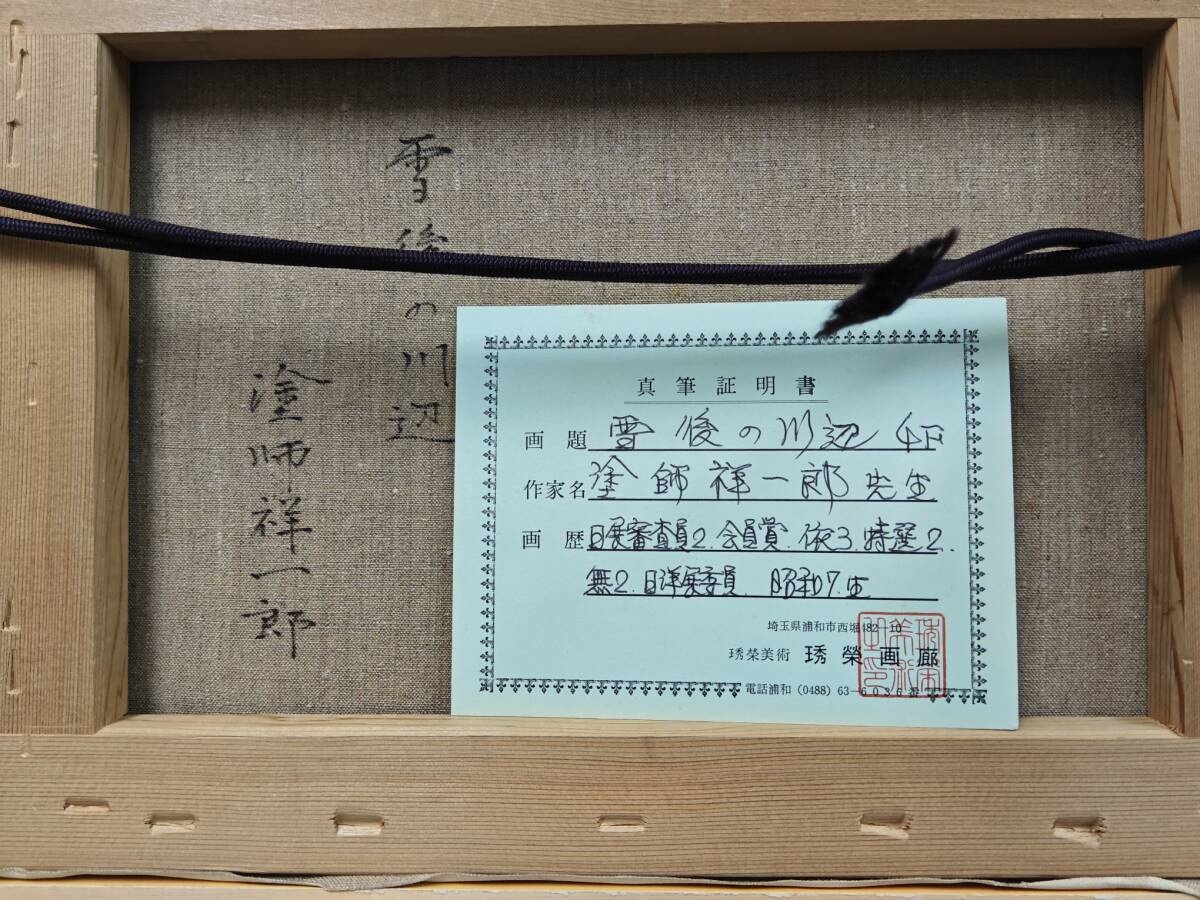 雪後の川辺
塗師祥一郎
真筆証明書
画題 雪後の川辺 4F
作家名 塗師祥一郎先生
画歴 日展審査員2.会員賞.依3.特選2.
無2.日洋展委員.昭和7.生
埼玉県浦和市西堀482-10
琇榮美術 琇榮画廊
電話浦和(0488)63-6036番